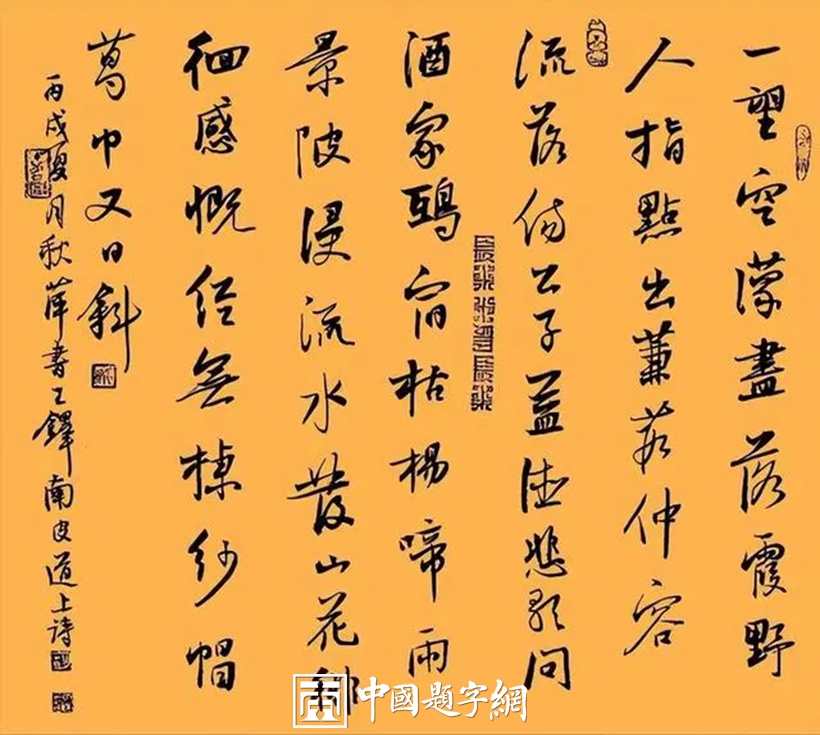 一望空濛盡落霞野
人指點出蒹葭仲容
流落傷公子益德悲歌問
酒家鴉宿枯楊啼雨
景陂浸流水發山花
徊感慨經無紗帽
葛巾又日斜
丙戌夏月秋萍書王鐸南皮道上詩
中國題字網